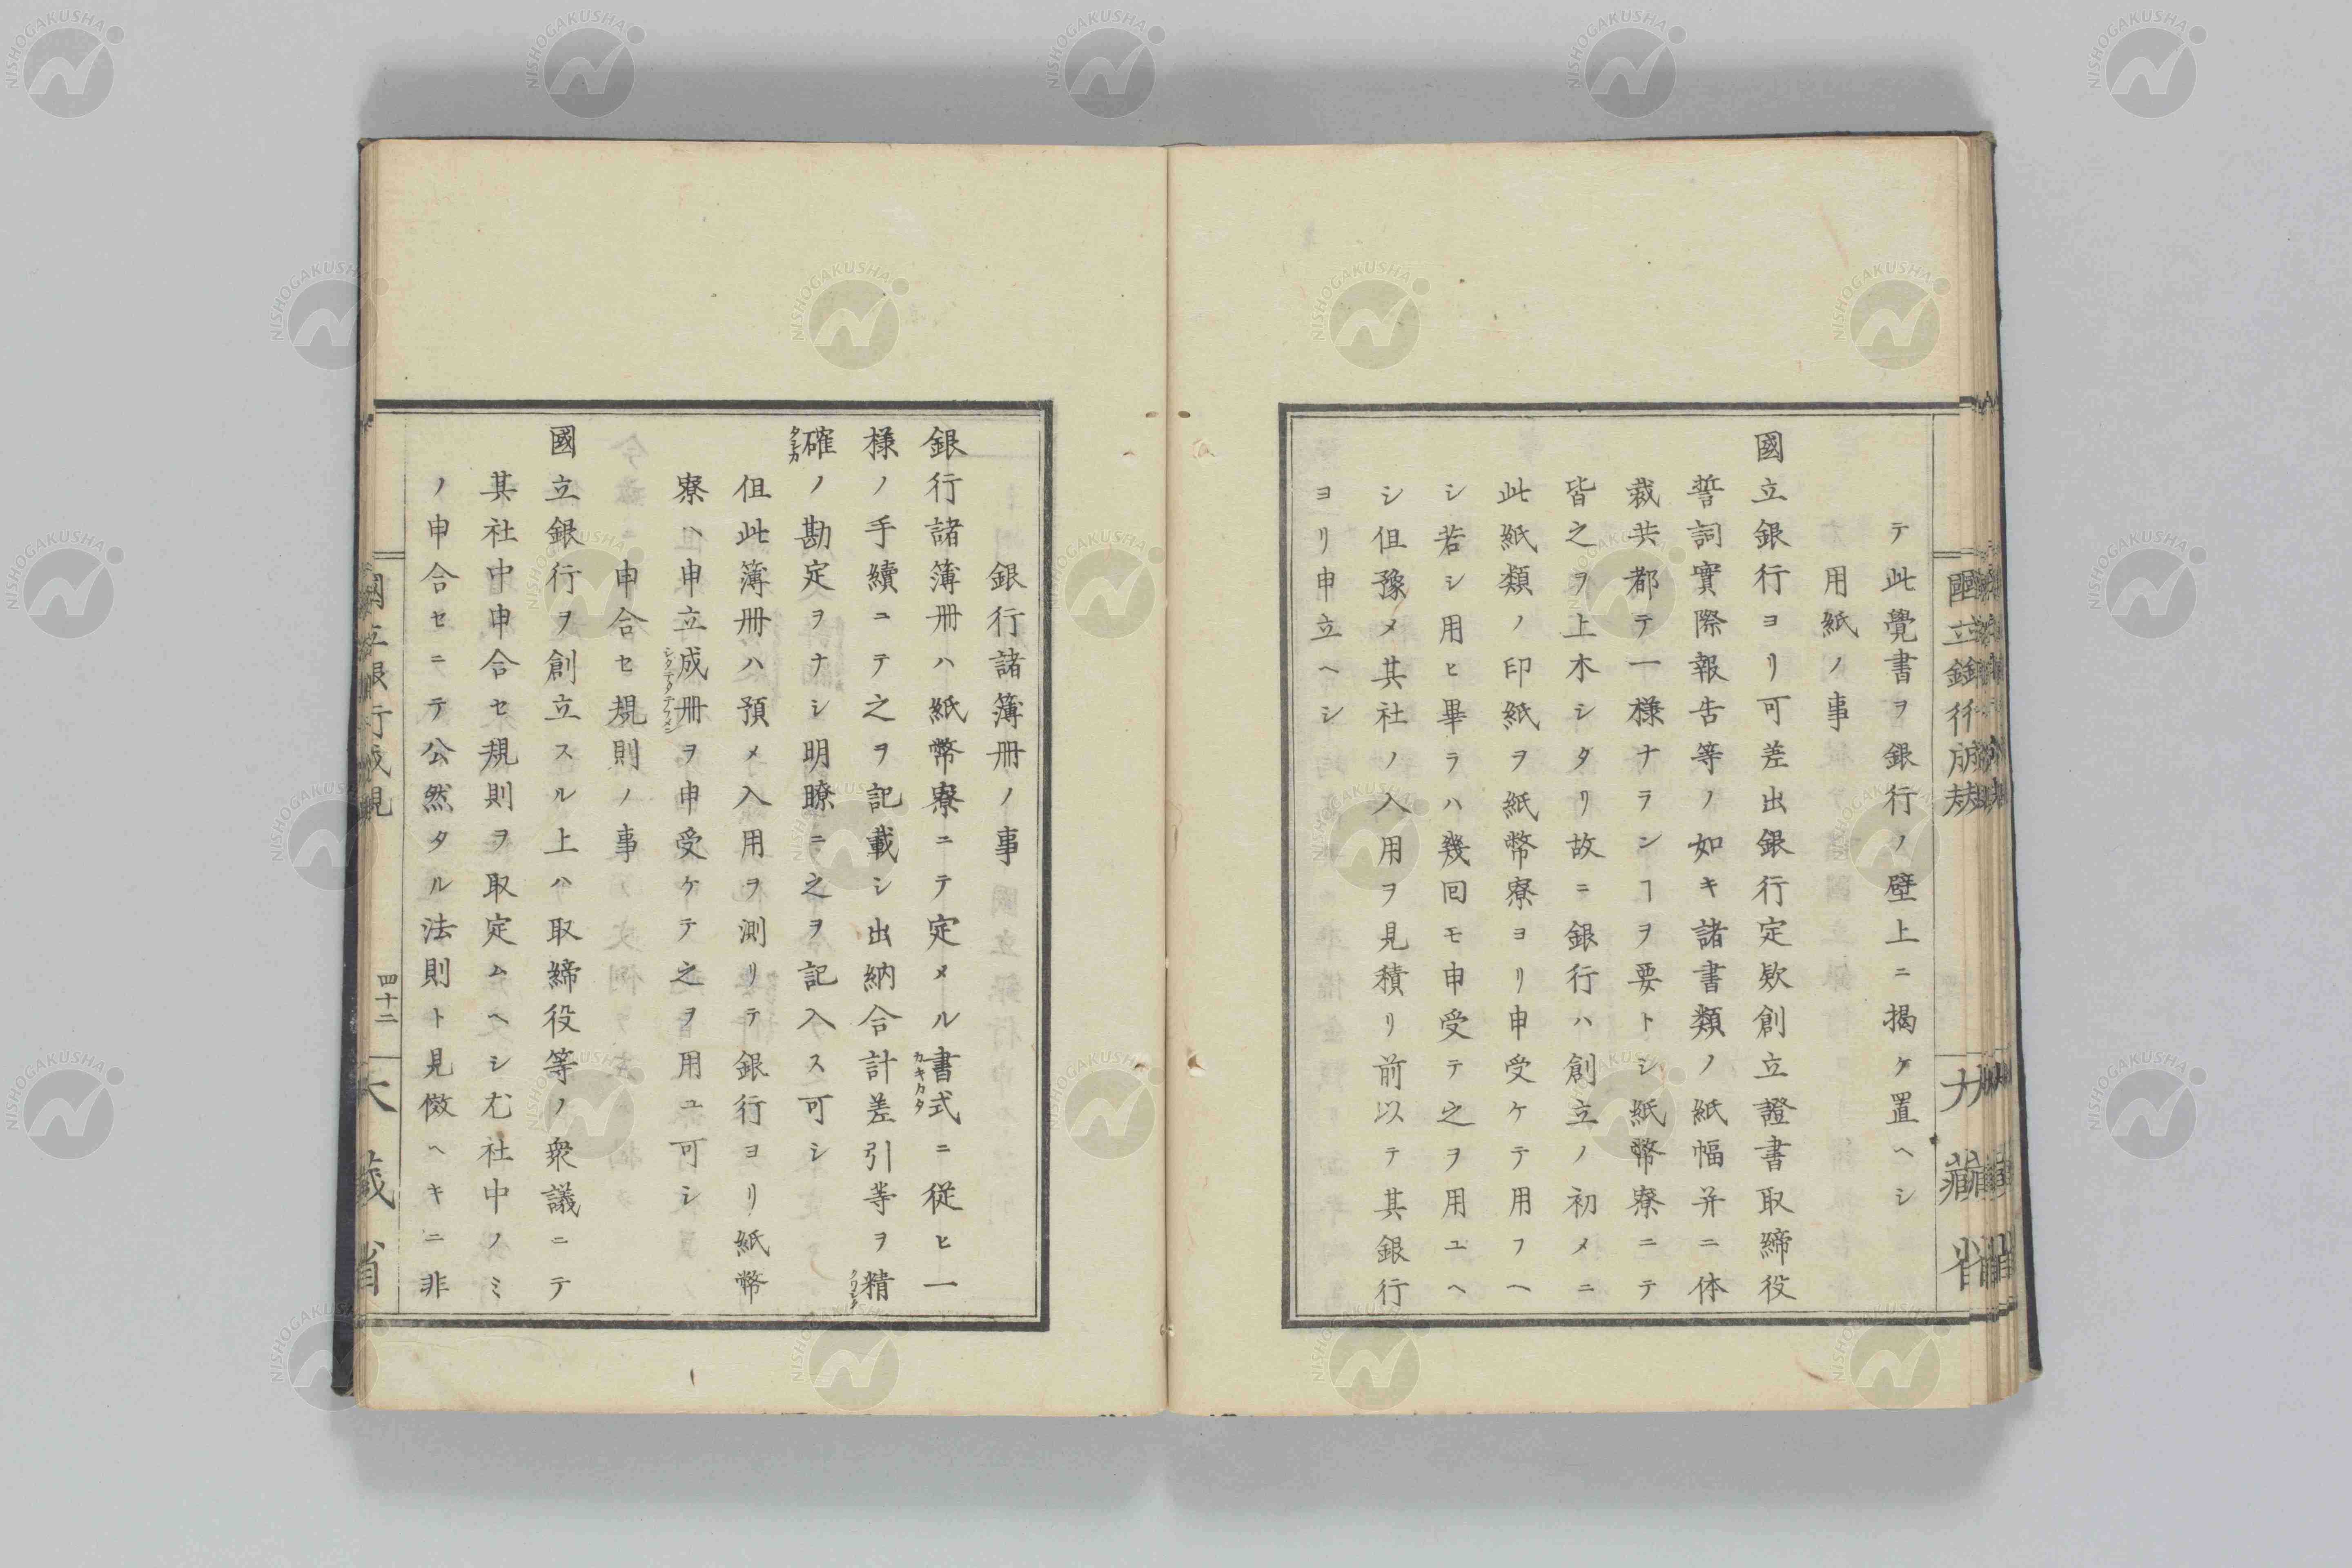 テ此覺書ヲ銀行ノ壁上ニ揭ケ置ヘシ
用紙ノ事
國立銀行ヨリ可差出銀行定欵創立證書取締役
誓詞實際報告等ノ如キ諸書類ノ紙幅并ニ体
裁共都テ一樣ナランヿヲ要トシ紙幣寮ニテ
皆之ヲ上木シタリ故ニ銀行ハ創立ノ初メニ
此紙類ノ印紙ヲ紙幣寮ヨリ申受ケテ用フヘ
シ若シ用ヒ畢ラハ幾回モ申受テ之ヲ用ユヘ
シ但豫メ其社ノ入用ヲ見積リ前以テ其銀行
ヨリ申立ヘシ
銀行諸簿冊ノ事
銀行諸簿冊ハ紙幣寮ニテ定メル書式ニ從ヒ一
カキカタ
樣ノ手續ニテ之ヲ記載シ出納合計差引等ヲ精
確ノ勘定ヲナシ明瞭ニ之ヲ記入ス可シ
タシカ
但此簿冊ハ預メ入用ヲ測リテ銀行ヨリ紙幣
寮ヘ申立成冊ヲ申受ケテ之ヲ用ユ可シ
申合セ規則ノ事
國立銀行ヲ創立スル上ハ取締役等ノ衆議ニテ
其社中申合セ規則ヲ取定ムヘシ尤社中ノミ
ノ申合セニテ公然タル法則ト見傚ヘキニ非
國立銀行成規
四十二
大藏省
NISHOGAKUSHA